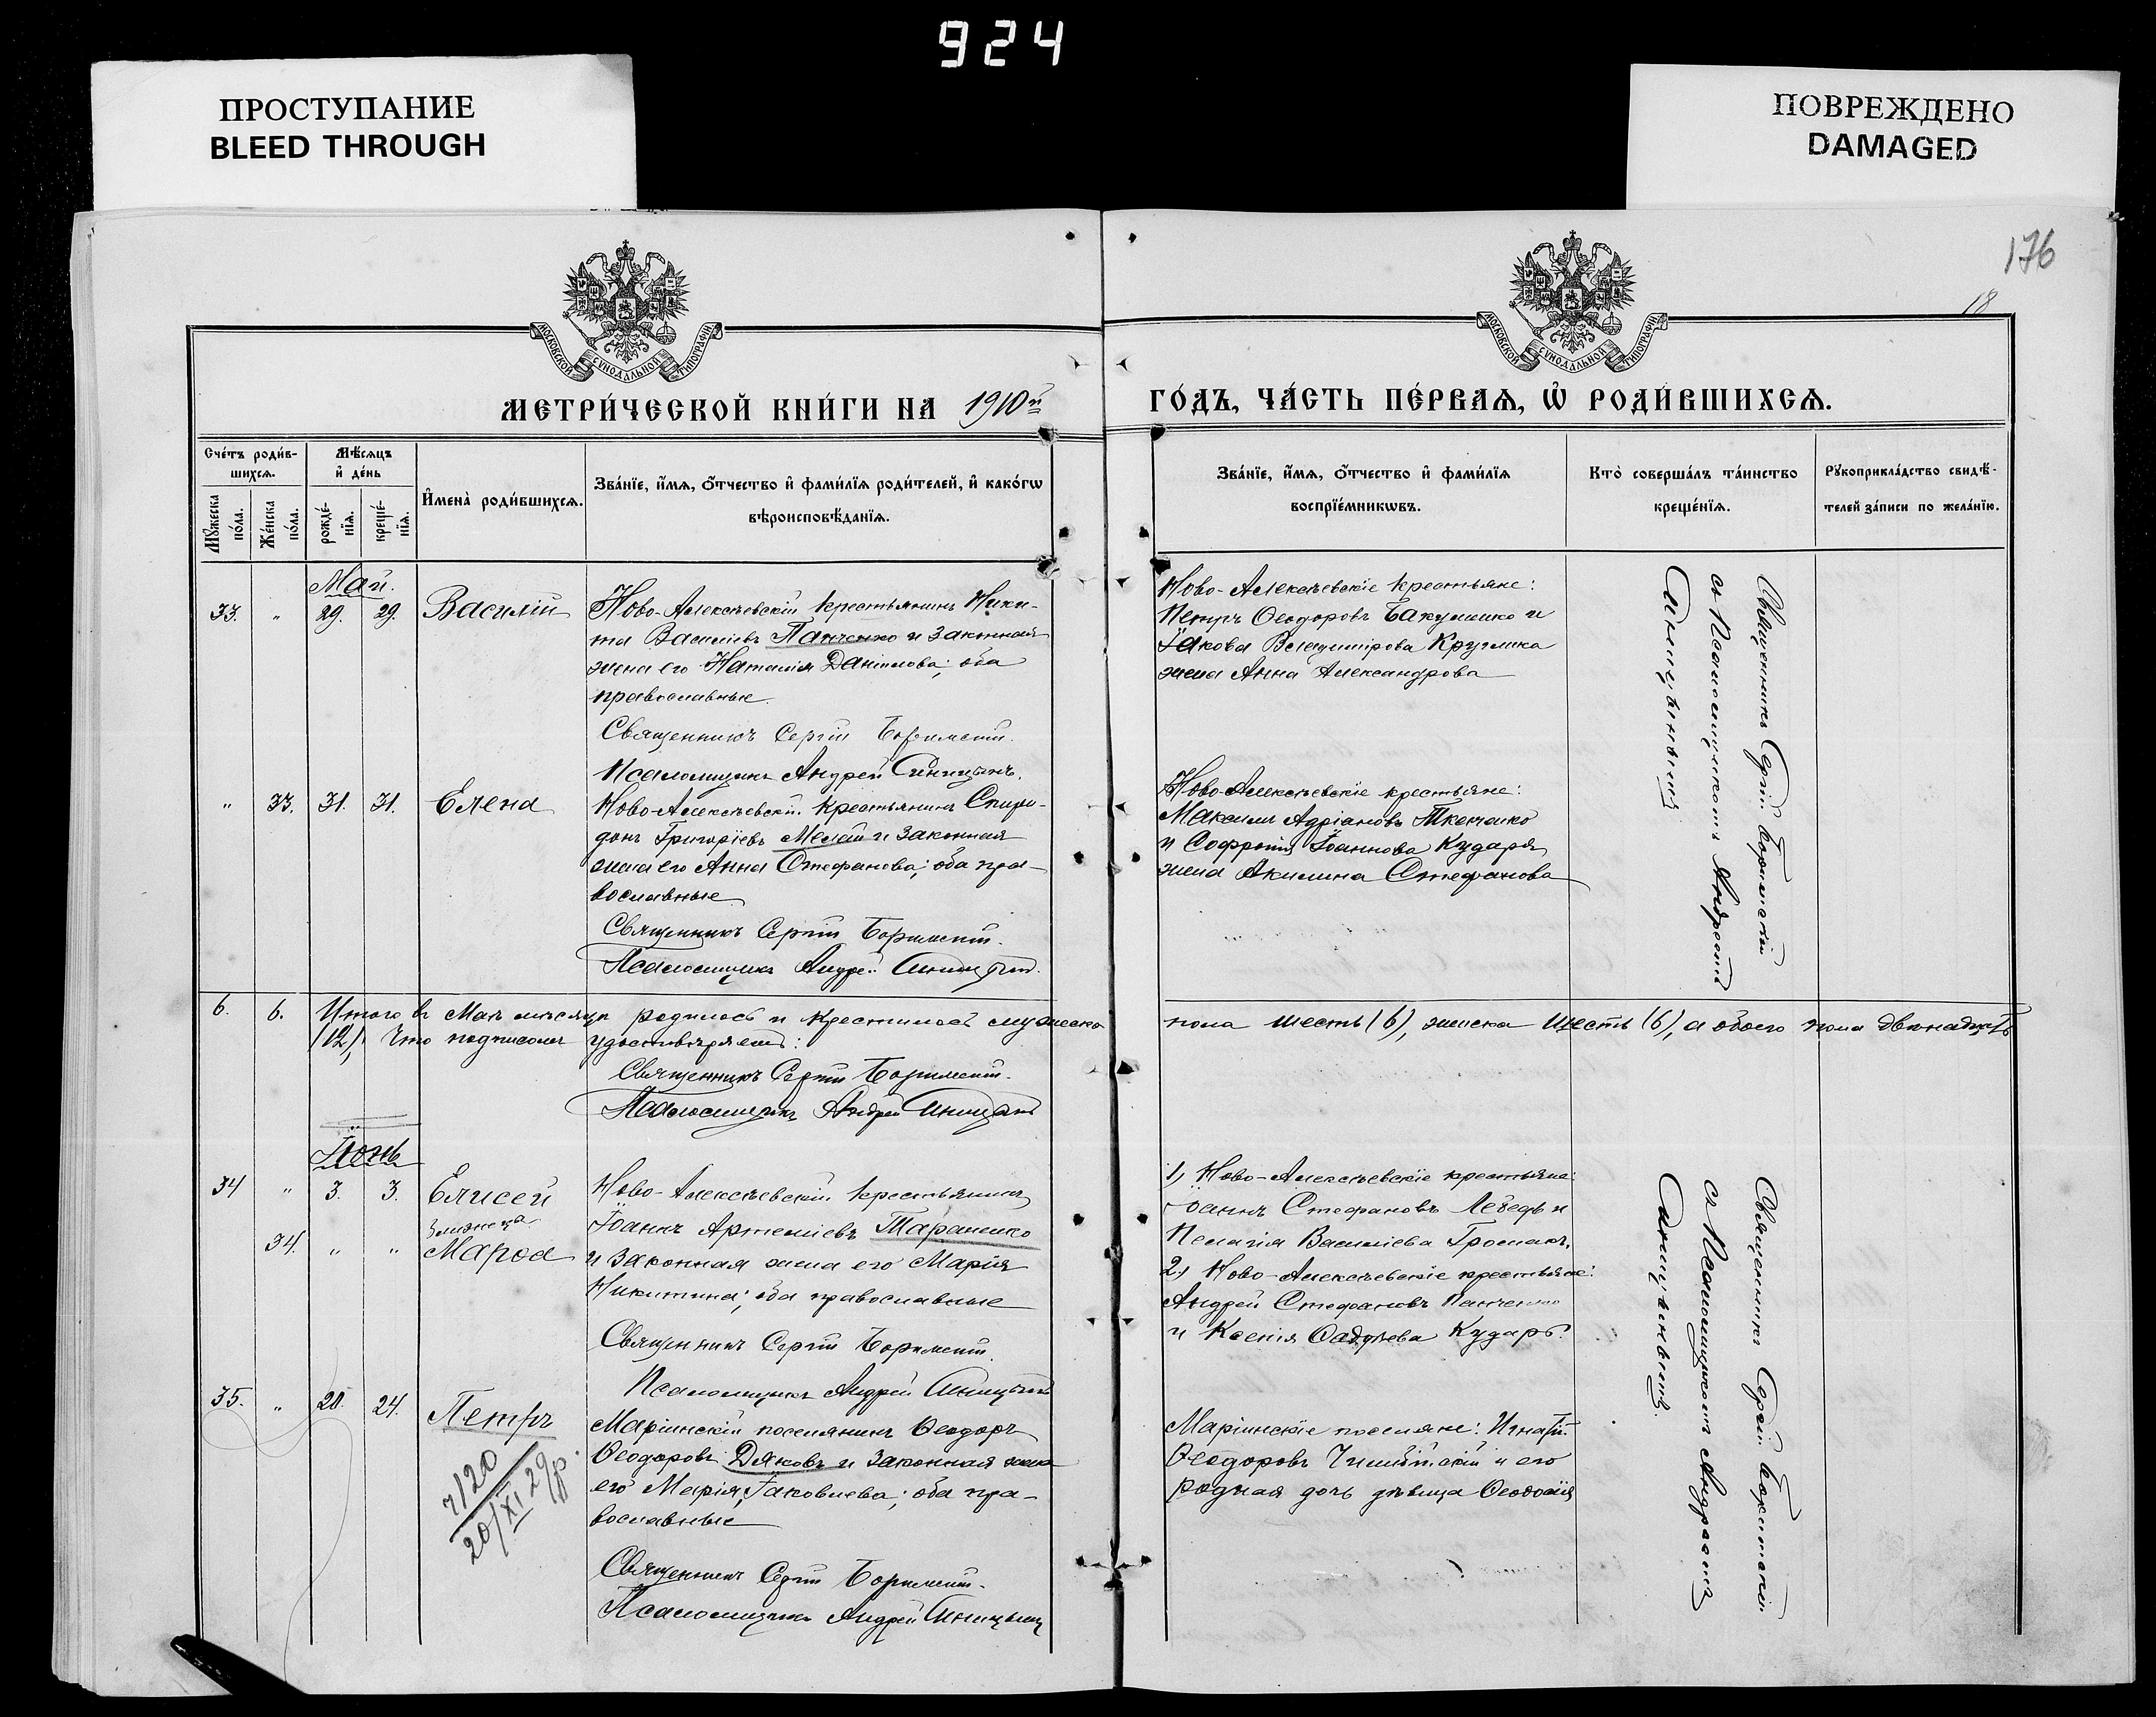 924
ПРОСТУПАНИЕ
BLEED THROUGH
ПОВРЕЖДЕНО
DAMAGED
176
18
МОСКОВСКОЙ СѴНОДАЛЬНОЙ ТИПОГРАФІИ
МОСКОВСКОЙ СѴНОДАЛЬНОЙ ТИПОГРАФІИ
МЕТРИ́ЧЕСКОЙ КНИ́ГИ НА 1910й
ГО́ДЪ, ЧА́СТЬ ПЕ́РВАѦ, Ѡ҆ РОДИ́ВШИХСѦ.
Сче́тъ роди́в-
шихсѧ.
Мꙋ́жеска по́ла.
Же́нска по́ла.
Мѣ́сѧцъ
и҆ де́нь
рожде́-
нїѧ.
креще́-
нїѧ.
И҆мена̀ роди́вшихсѧ.
Зва́нїе, и҆́мѧ, ѻ҆́тчество и҆ фами́лїѧ роди́телей, и҆ како́гѡ
вѣроисповѣ́данїѧ.
Зва́нїе, и҆́мѧ, ѻ҆́тчество и҆ фами́лїѧ
воспрїе́мникѡвъ.
Кто̀ соверша́лъ та́инство
креще́нїѧ.
Рꙋкоприкла́дство свидѣ́-
телей за́писи по жела́нїю.
Май.
33. " 29. 29. Василій
Ново-Алексѣевскій крестьянинъ Ники-
та Василіевъ Панченко и законная
жена его Наталія Даніилова; оба
православные.
Священникъ Сергій
Псаломщикъ Андрей Синицынъ.
Ново-Алексѣевскіе крестьяне:
Петръ Ѳеодоровъ и
Іакова Владимірова Круглика
жена Анна Александрова
Священникъ Сергій
съ Псаломщикомъ Андреемъ
Синицынымъ.
" 33. 31. 31. Елена
Ново-Алексѣевскій крестьянинъ Спири-
донъ Григоріевъ и законная
жена его Анна Стефанова; оба пра-
вославные
Священникъ Сергій
Псаломщикъ Андрей Синицынъ.
Ново-Алексѣевскіе крестьяне:
Максимъ Адріановъ Ткаченко
и Софронія Іоаннова Кударя
жена Акилина Стефанова
6. 6. Итого въ Маѣ мѣсяцѣ родилось и крестилось мужеска
пола шесть (6), женска шесть (6), а обоего пола двѣнадцать
(12). Что подписомъ удостовѣряемъ:
Священникъ Сергій
Псаломщикъ Андрей Синицынъ
Іюнь
34 " 3. 3. Елисей
близнецы
34. " " Марѳа
Ново-Алексѣевскій крестьянинъ
Іоаннъ Артеміевъ Тараненко
и законная жена его Марія
Никитина; оба православные
Священникъ Сергій
Псаломщикъ Андрей Синицынъ
1, Ново-Алексѣевскіе крестьяне:
Іоаннъ Стефановъ Лебедь и
Пелагія Василіева Громакъ,
2, Ново-Алексѣевскіе крестьяне:
Андрей Стефановъ Панченко
и Ксенія Ѳаддѣева Кударь.
Священникъ Сергій
съ Псаломщикомъ Андреемъ
Синицынымъ.
35. " 20. 24. Петръ
Маріинскій поселянинъ Ѳеодоръ
Ѳеодоровъ Дяковъ и законная жена
его Марія Іаковлева; оба пра-
вославные
Священникъ Сергій
Псаломщикъ Андрей Синицынъ
Маріинскіе поселяне: Игнатій
Ѳеодоровъ и его
родная дочь дѣвица Ѳеодосія
20/XI 29 р.